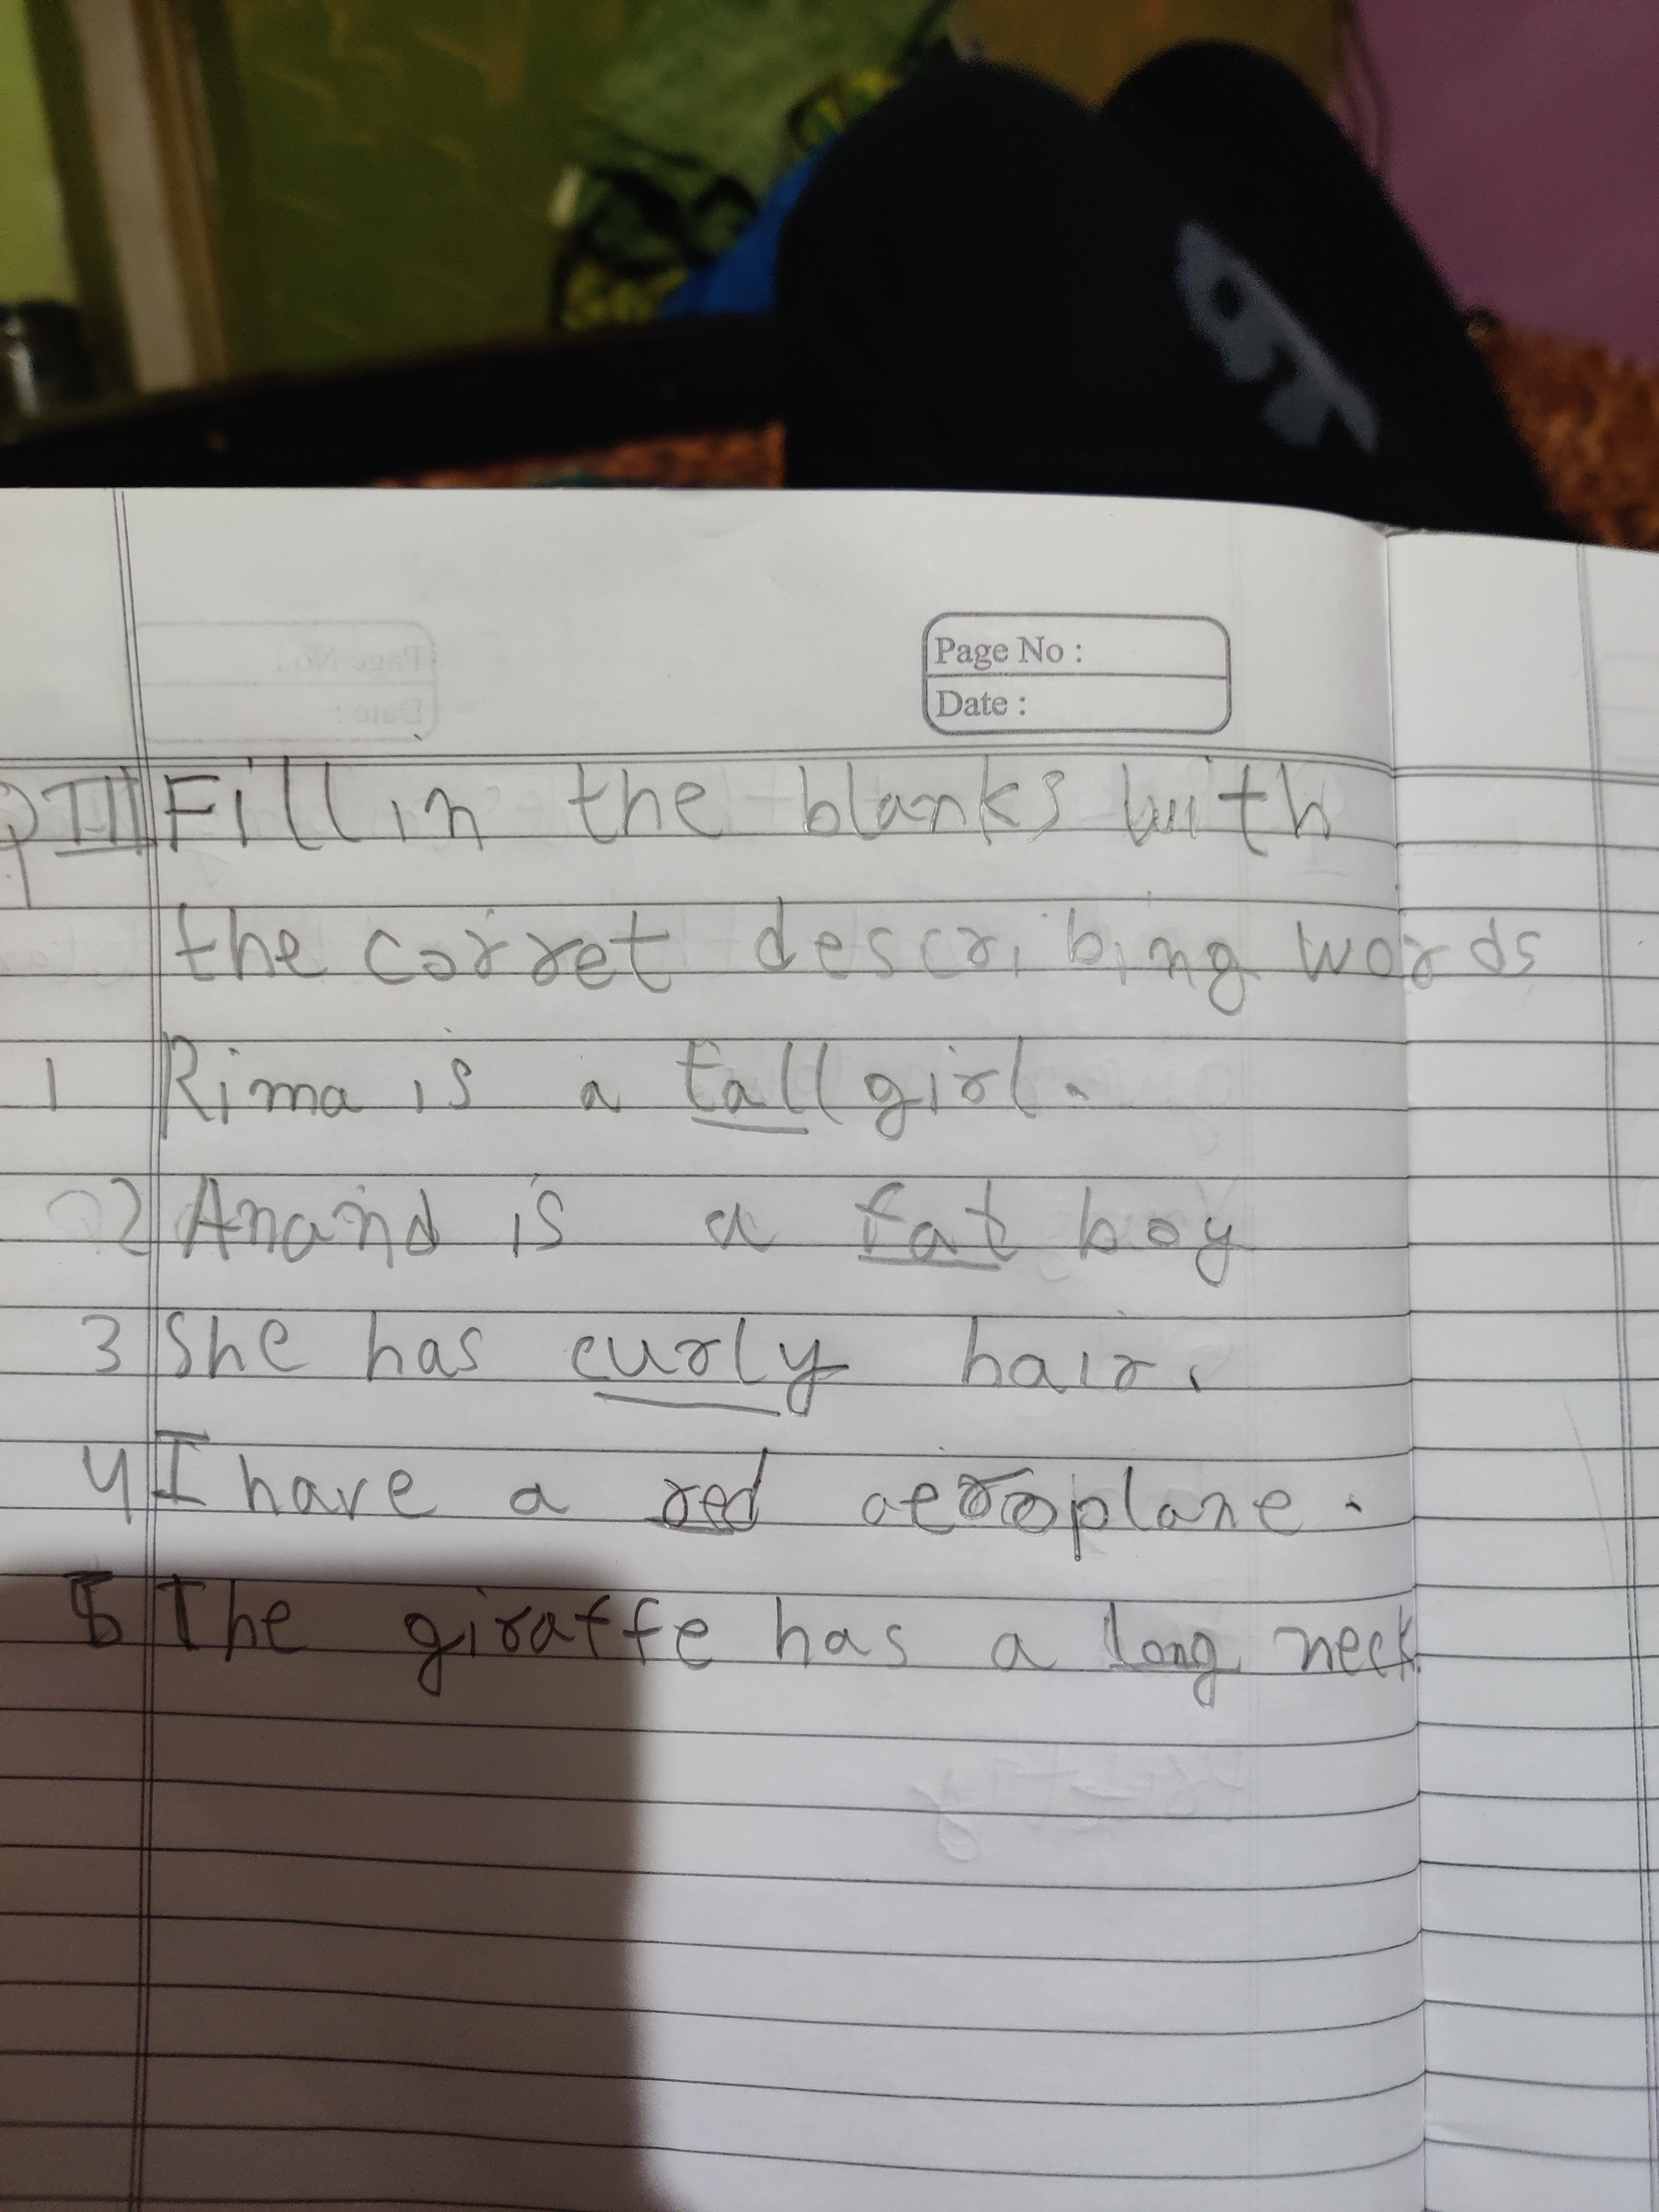 Page No :
Date :
Q III Fill in the blanks with
the corret describing words
1 Rima is a tall girl.
2 Anand is a fat boy
3 She has curly hair.
4 I have a red aeroplane.
5 The giraffe has a long neck.